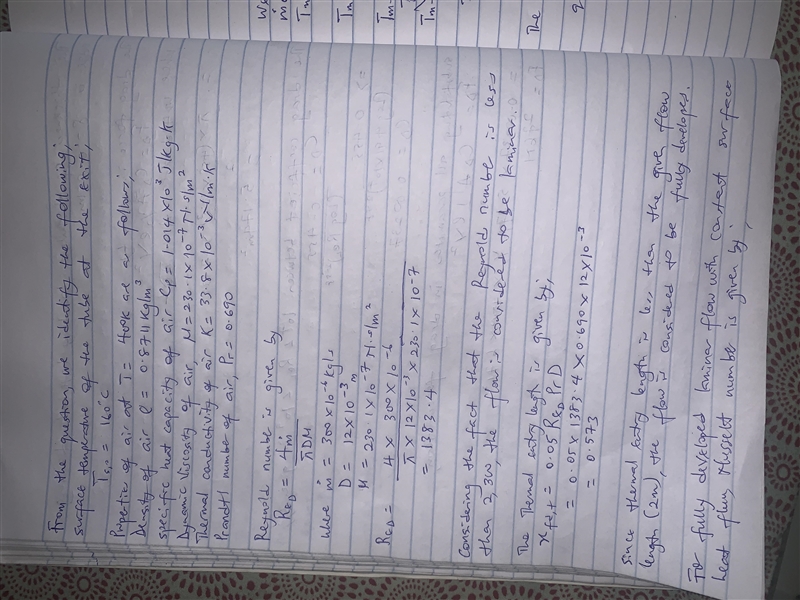 From the question, we identify the following;
surface temperature of the tube at the exit;
Ts,o = 160°C
Properties of air at T = 400K are as follows;
Density of air ρ = 0.8711 kg/m³
specific heat capacity of air Cp = 1.014 x 10³ J/kg.K
Dynamic Viscosity of air, μ = 230.1 x 10⁻⁷ N.s/m²
Thermal conductivity of air K = 33.8 x 10⁻³ W/m.K
Prandtl number of air, Pr = 0.690
Reynold number is given by
ReD = 4ṁ
πDμ
where ṁ = 300 x 10⁻⁶ kg/s
D = 12 x 10⁻³ m
μ = 230.1 x 10⁻⁷ N.s/m²
ReD = 4 x 300 x 10⁻⁶
π x 12 x 10⁻³ x 230.1 x 10⁻⁷
= 1383.4
Considering the fact that the Reynold number is less
than 2,300, the flow is considered to be laminar.
The Thermal entry length is given by;
xfd,t = 0.05 ReD Pr D
= 0.05 x 1383.4 x 0.690 x 12 x 10⁻³
= 0.573
since thermal entry length is less than the given flow
length (2m), the flow is considered to be fully developed.
For fully developed laminar flow with constant surface
heat flux, Nusselt number is given by;
We
Tm
Tm
Tm
The
q